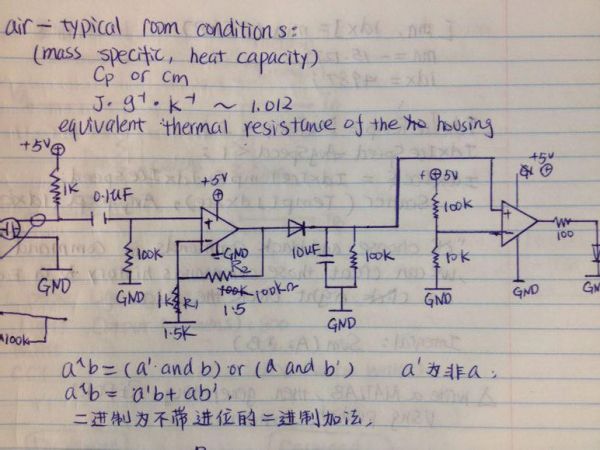 air – typical room conditions:
(mass specific, heat capacity)
Cp or cm
J·g⁻¹·K⁻¹ ~ 1.012
equivalent thermal resistance of the housing
+5V
+5V
+5V
+5V
1K
0.1UF
100K
GND
GND
GND
R2
100K
100KΩ
1.5
1K
R1
1.5K
10UF
100K
GND
100K
10K
GND
GND
100
GND
100K
a^b = (a' and b) or (a and b') a'为非a.
a^b = a'b + ab'.
二进制为不带进位的二进制加法.